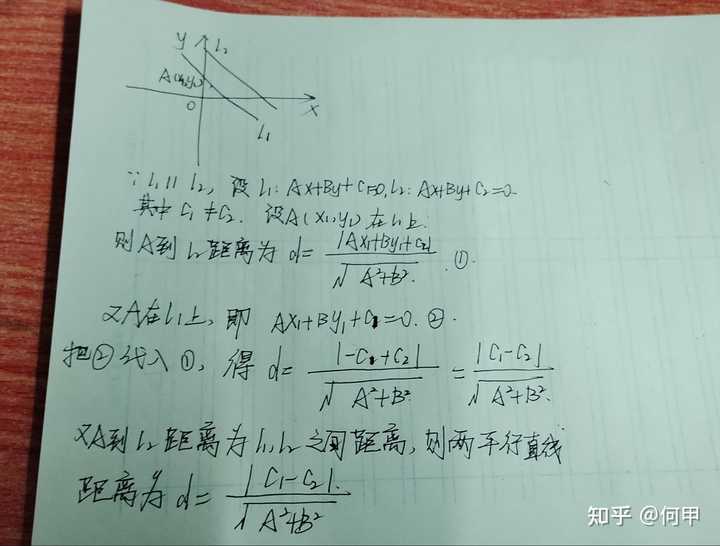 y
l₂
A(x₁,y₁)
O
x
l₁
∵ l₁∥l₂, 设 l₁: Ax+By+C₁=0, l₂: Ax+By+C₂=0.
其中 C₁≠C₂. 设A(x₁,y₁)在l₁上.
则A到l₂距离为 d= |Ax₁+By₁+C₂| / √A²+B². ①.
又A在l₁上, 即 Ax₁+By₁+C₁=0. ②.
把②代入①, 得 d= |-C₁+C₂| / √A²+B² = |C₁-C₂| / √A²+B².
又A到l₂距离为l₁,l₂之间距离, 则两平行直线
距离为 d= |C₁-C₂| / √A²+B²
知乎 @何甲